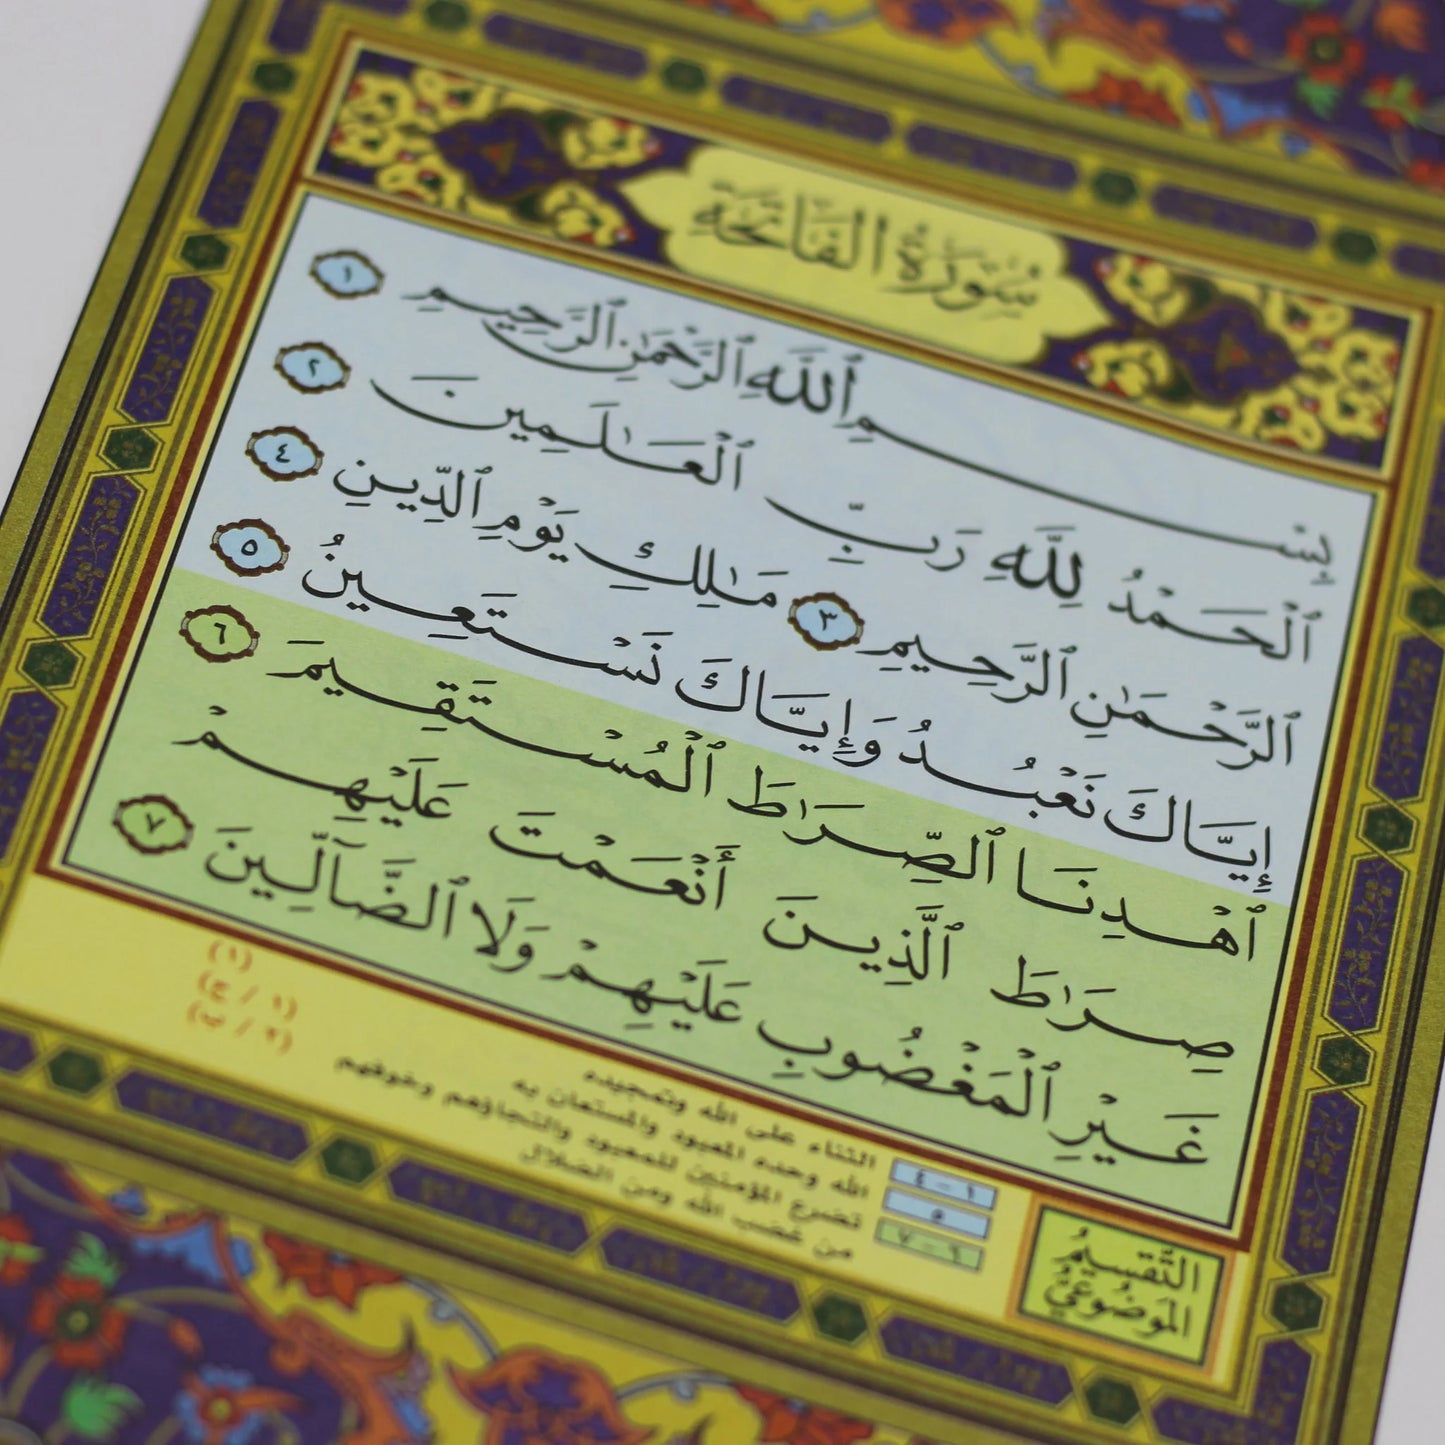 سُورَةُ الفَاتِحَةِ
بِسْمِ ٱللَّهِ ٱلرَّحْمَٰنِ ٱلرَّحِيمِ ١
ٱلْحَمْدُ لِلَّهِ رَبِّ ٱلْعَٰلَمِينَ ٢
ٱلرَّحْمَٰنِ ٱلرَّحِيمِ ٣ مَٰلِكِ يَوْمِ ٱلدِّينِ ٤
إِيَّاكَ نَعْبُدُ وَإِيَّاكَ نَسْتَعِينُ ٥
ٱهْدِنَا ٱلصِّرَٰطَ ٱلْمُسْتَقِيمَ ٦
صِرَٰطَ ٱلَّذِينَ أَنْعَمْتَ عَلَيْهِمْ
غَيْرِ ٱلْمَغْضُوبِ عَلَيْهِمْ وَلَا ٱلضَّآلِّينَ ٧
التَّقسِيمُ
المَوضُوعيُّ
١ - ٤ الثناء على الله وتمجيده (١)
٥ الله وحده المعبود والمستعان به (١ / ج)
٦ - ٧ تضرع المؤمنين للمعبود والتجاؤهم وخوفهم (٢ / ب)
من غضب الله ومن الضلال